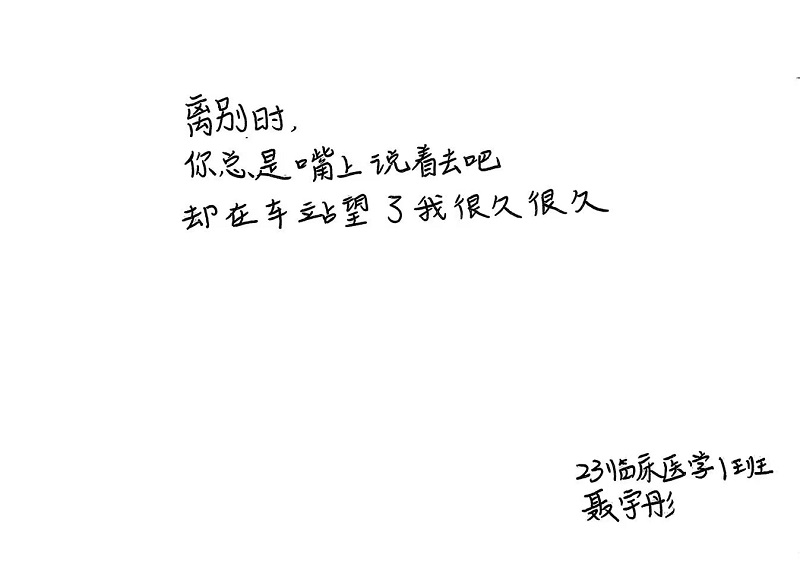 离别时,
你总是嘴上说着去吧
却在车站望了我很久很久
23临床医学1班
聂宇彤